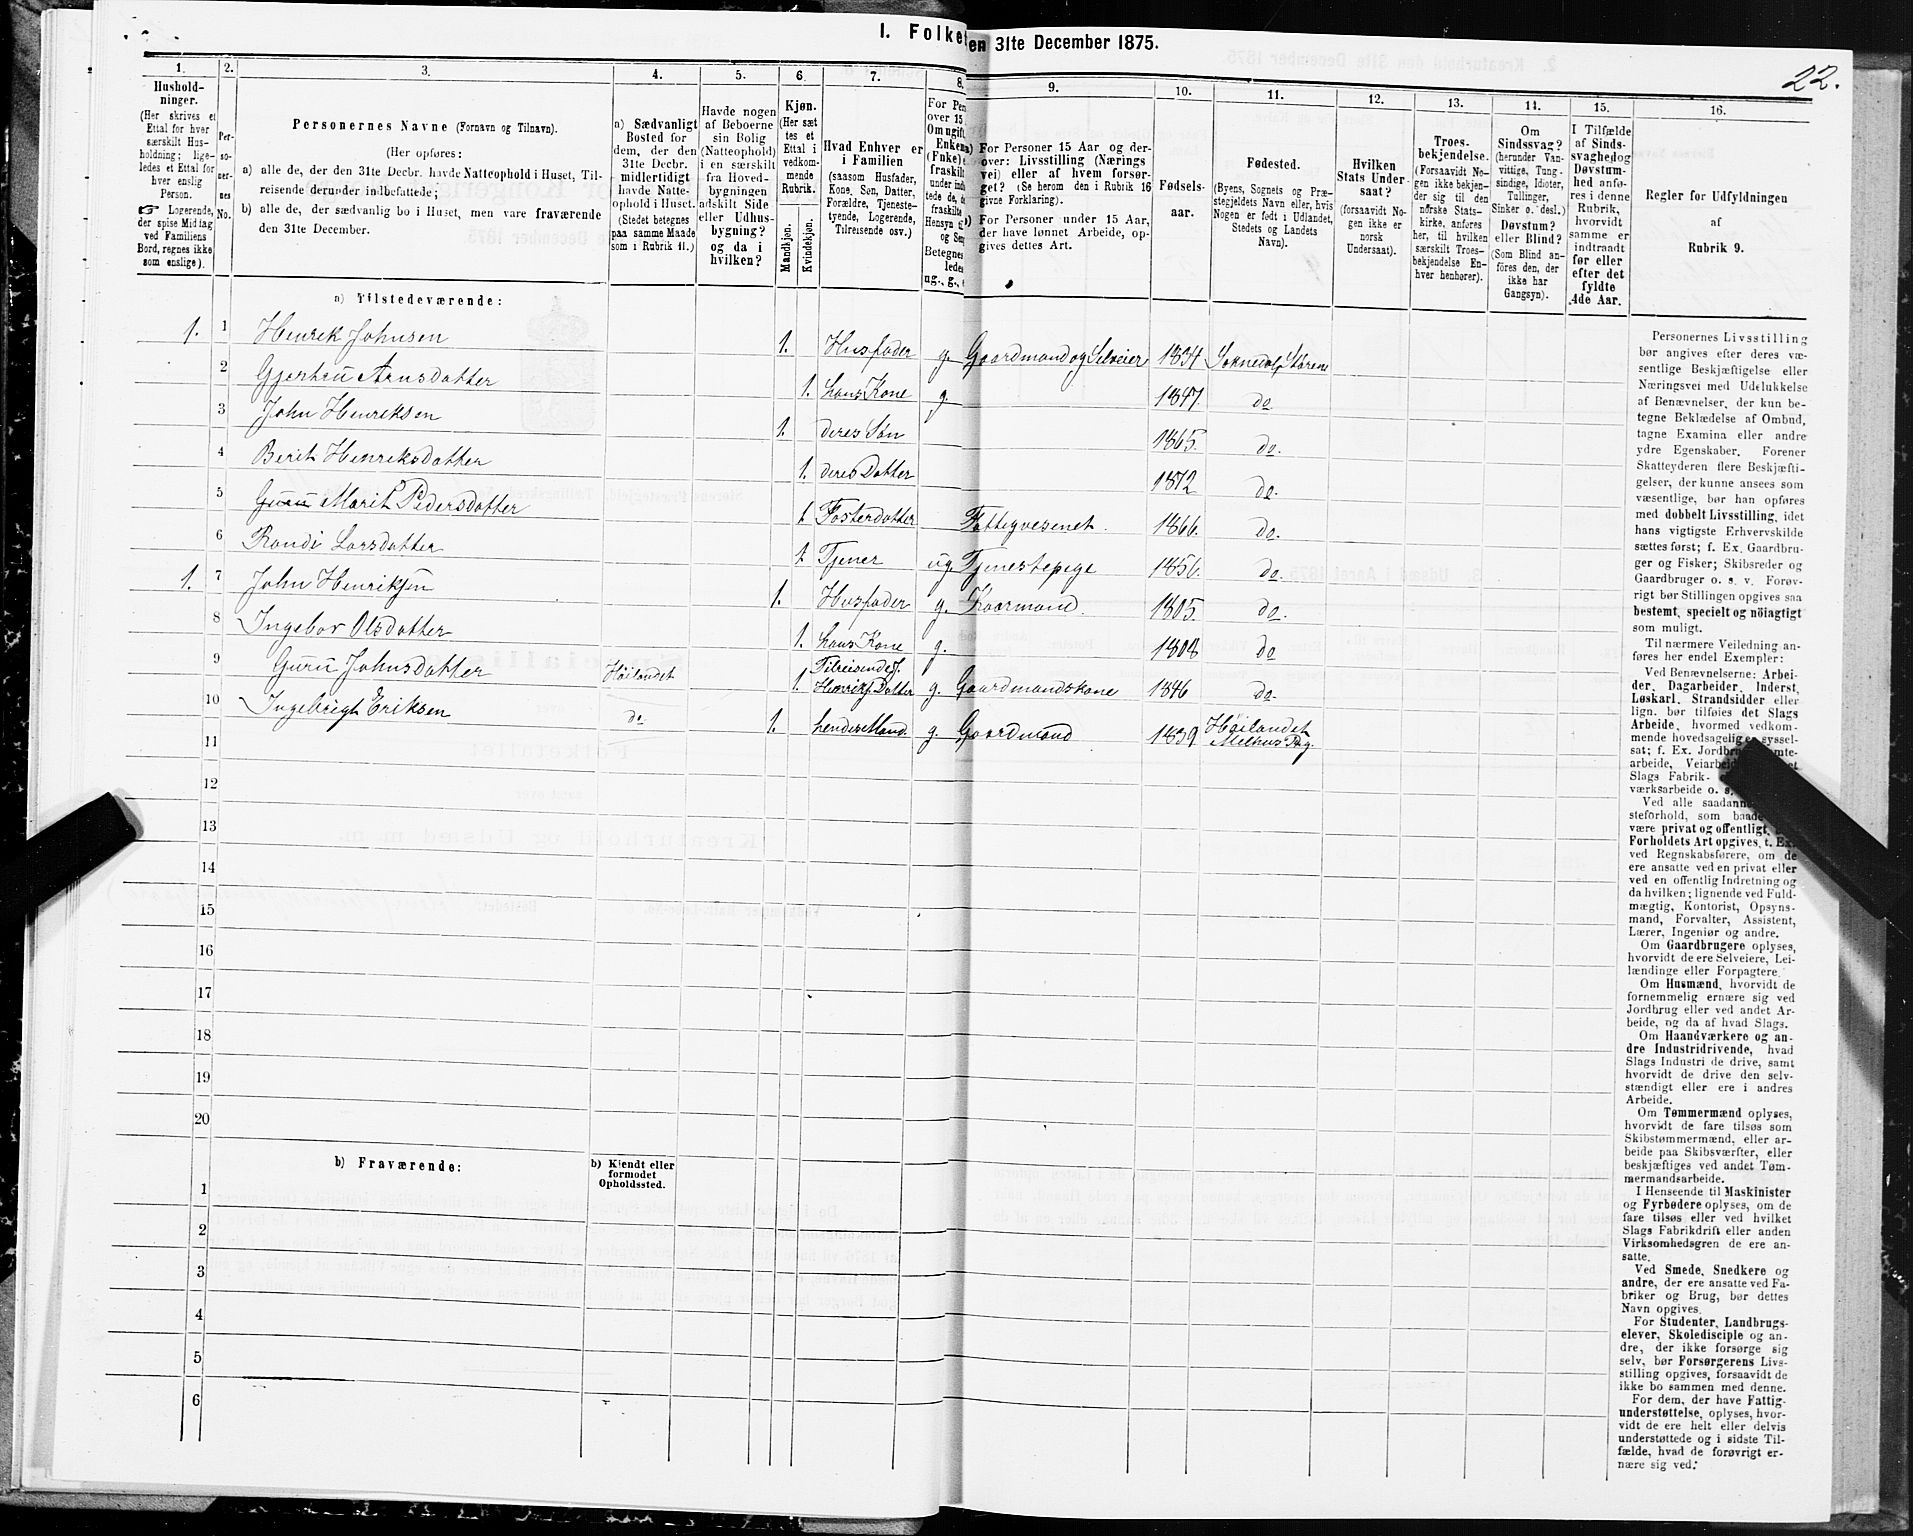 I. Folke
en 31te December 1875.
22.
1. 2. 3. 4. 5. 6. 7. 8. 9. 10. 11. 12. 13. 14. 15. 16.
Hushold-
ninger.
(Her skrives et
Ettal for hver
særskilt Hus-
holdning; lige-
ledes et Ettal for
hver enslig
Person.
Logerende,
der spise Middag
ved Familiens
Bord, regnes ikke
som enslige).
Per-
so-
ner-
nes
No.
Personernes Navne (Fornavn og Tilnavn).
(Her opføres:
a) alle de, der den 31te Decbr. havde Natteophold i Huset, Til-
reisende derunder indbefattede;
b) alle de, der sædvanlig bo i Huset, men vare fraværende
den 31te December.
a) Sædvanligt
Bosted for
dem, der den
31te Decbr.
midlertidigt
havde Natte-
ophold i Huset.
(Stedet betegnes
paa samme Maade
som i Rubrik 11.)
Havde nogen
af Beboerne
sin Bolig
(Natteophold)
i en særskilt
fra Hoved-
bygningen
adskilt Side
eller Udhus-
bygning?
og da i
hvilken?
Kjøn.
(Her sæt
tes et
Ettal i
vedkom-
mende
Rubrik.
Mandkjøn.
Kvindekjøn.
Hvad Enhver er
i Familien
(saasom Husfader,
Kone, Søn, Datter,
Forældre, Tjeneste-
tyende, Logerende,
Tilreisende osv.)
For Per
over 15
Om ugift,
Enkem
(Fnke)
fraskilt
under indb
tede de,
fraskilte
Hensyn ti
og Sen
Betegnes
ledes
ug., g.,
a) For Personer 15 Aar og der-
over: Livsstilling (Nærings
vei) eller af hvem forsør-
get? (Se herom den i Rubrik 16
givne Forklaring).
b) For Personer under 15 Aar,
der have lønnet Arbeide, op-
gives dettes Art.
Fødsels-
aar.
Fødested.
(Byens, Sognets og Præ-
stegjeldets Navn eller, hvis
Nogen er født i Udlandet,
Stedets og Landets
Navn).
Hvilken
Stats Under-
saat?
(forsaavidt No-
gen ikke er
norsk
Undersaat).
Troes-
bekjendelse.
(Forsaavidt No-
gen ikke bekjen-
der sig til den
norske Stats-
kirke, anføres
her, til hvilken
særskilt Troes-
bekjendelse En-
hver henhører).
Om
Sindssvag?
(herunder Van-
vittige, Tung-
sindige, Idioter,
Tullinger,
Sinker o. desl.)
Døvstum?
eller Blind?
(Som Blind an-
föres den, der
ikke har
Gangsyn).
I Tilfælde
af Sinds-
svaghed og
Døvstum-
hed anfø-
res i denne
Rubrik,
hvorvidt
samme er
indtraadt
før eller
efter det
fyldte
4de Aar.
Regler for Udfyldningen
af
Rubrik 9.
a) Tilstedeværende:
1. 1 Henrek Johnsen 1. Husfader g. Gaardmand og Selveier 1834 Soknedal Størens
2 Gjertru Arnsdatter 1. hans Kone g. 1847. do
3 John Henreksen 1. deres Søn 1865. do.
4 Berit Henreksdatter 1. deres Datter 1872 do.
5 Guru Marit Pedersdatter 1 Fosterdatter Fattigvesenet. 1866. do.
6 Randi Larsdatter 1. Tjener ug. Tjenestepige 1856. do.
1. 7 John Henriksen 1. Husfader g. Kaarmand. 1805. do.
8 Ingebor Olsdatter 1. hans Kone g. 1808 do
9 Guru Johnsdatter Höilandet 1. Tilreisendes. Henriks Datter g. Gaardmandskone 1846 do.
10 Ingebrigt Eriksen do. 1. hendes Mand. g. Gaardmand 1839 Höilandet Melhus Pg.
11
12
13
14
15
16
17
18
19
20
b) Fraværende:
b) Kjendt eller
formodet
Opholdssted.
1
2
3
4
5
6
Personernes Livsstilling
bør angives efter deres væ-
sentlige Beskjæftigelse eller
Næringsvei med Udelukkelse
af Benævnelser, der kun be-
tegne Beklædelse af Ombud,
tagne Examina eller andre
ydre Egenskaber. Forener
Skatteyderen flere Beskjæfti-
gelser, der kunne ansees som
væsentlige, bør han opføres
med dobbelt Livsstilling, idet
hans vigtigste Erhvervskilde
sættes først; f. Ex. Gaardbru-
ger og Fisker; Skibsreder og
Gaardbruger o. s. v. Forøv-
rigt bør Stillingen opgives saa
bestemt, specielt og nöiagtigt
som muligt.
Til nærmere Veiledning an-
føres her endel Exempler:
Ved Benævnelserne: Arbei-
der, Dagarbeider, Inderst,
Løskarl, Strandsidder eller
lign. bør tilföies det Slags
Arbeide, hvormed vedkom-
mende hovedsagelig er syssel-
sat; f. Ex. Jordbr mte-
arbeide, Veiarbei et
Slags Fabrik-
værksarbeide o. s.
Ved alle saadan
steforhold, som baade
være privat og offentligt,
Forholdets Art opgives, t. Ex.
ved Regnskabsførere, om de
ere ansatte ved en privat eller
ved en offentlig Indretning og
da hvilken; lignende ved Fuld-
mægtig, Kontorist, Opsyns-
mand, Forvalter, Assistent,
Lærer, Ingeniør og andre.
Om Gaardbrugere oplyses,
hvorvidt de ere Selveiere, Lei-
lændinge eller Forpagtere.
Om Husmænd, hvorvidt de
fornemmelig ernære sig ved
Jordbrug eller ved andet Ar-
beide, og da af hvad Slags.
Om Haandværkere og an-
dre Industridrivende, hvad
Slags Industri de drive, samt
hvorvidt de drive den selv-
stændigt eller ere i andres
Arbeide.
Om Tømmermænd oplyses,
hvorvidt de fare tilsøs som
Skibstømmermænd, eller ar-
beide paa Skibsværfter, eller
beskjæftiges ved andet Tøm-
mermandsarbeide.
I Henseende til Maskinister
og Fyrbødere oplyses, om de
fare tilsøs eller ved hvilket
Slags Fabrikdrift eller anden
Virksomhedsgren de ere an-
satte.
Ved Smede, Snedkere og
andre, der ere ansatte ved Fa-
briker og Brug, bør dettes
Navn opgives.
For Studenter, Landbrugs-
elever, Skoledisciple og an-
dre, der ikke forsørge sig
selv, bør Forsørgerens Livs-
stilling opgives, forsaavidt de
ikke bo sammen med denne.
For dem, der have Fattig-
understøttelse, oplyses, hvor-
vidt de ere helt eller delvis
understøttede og i sidste Til-
fælde, hvad de forøvrigt er-
nære sig ved.